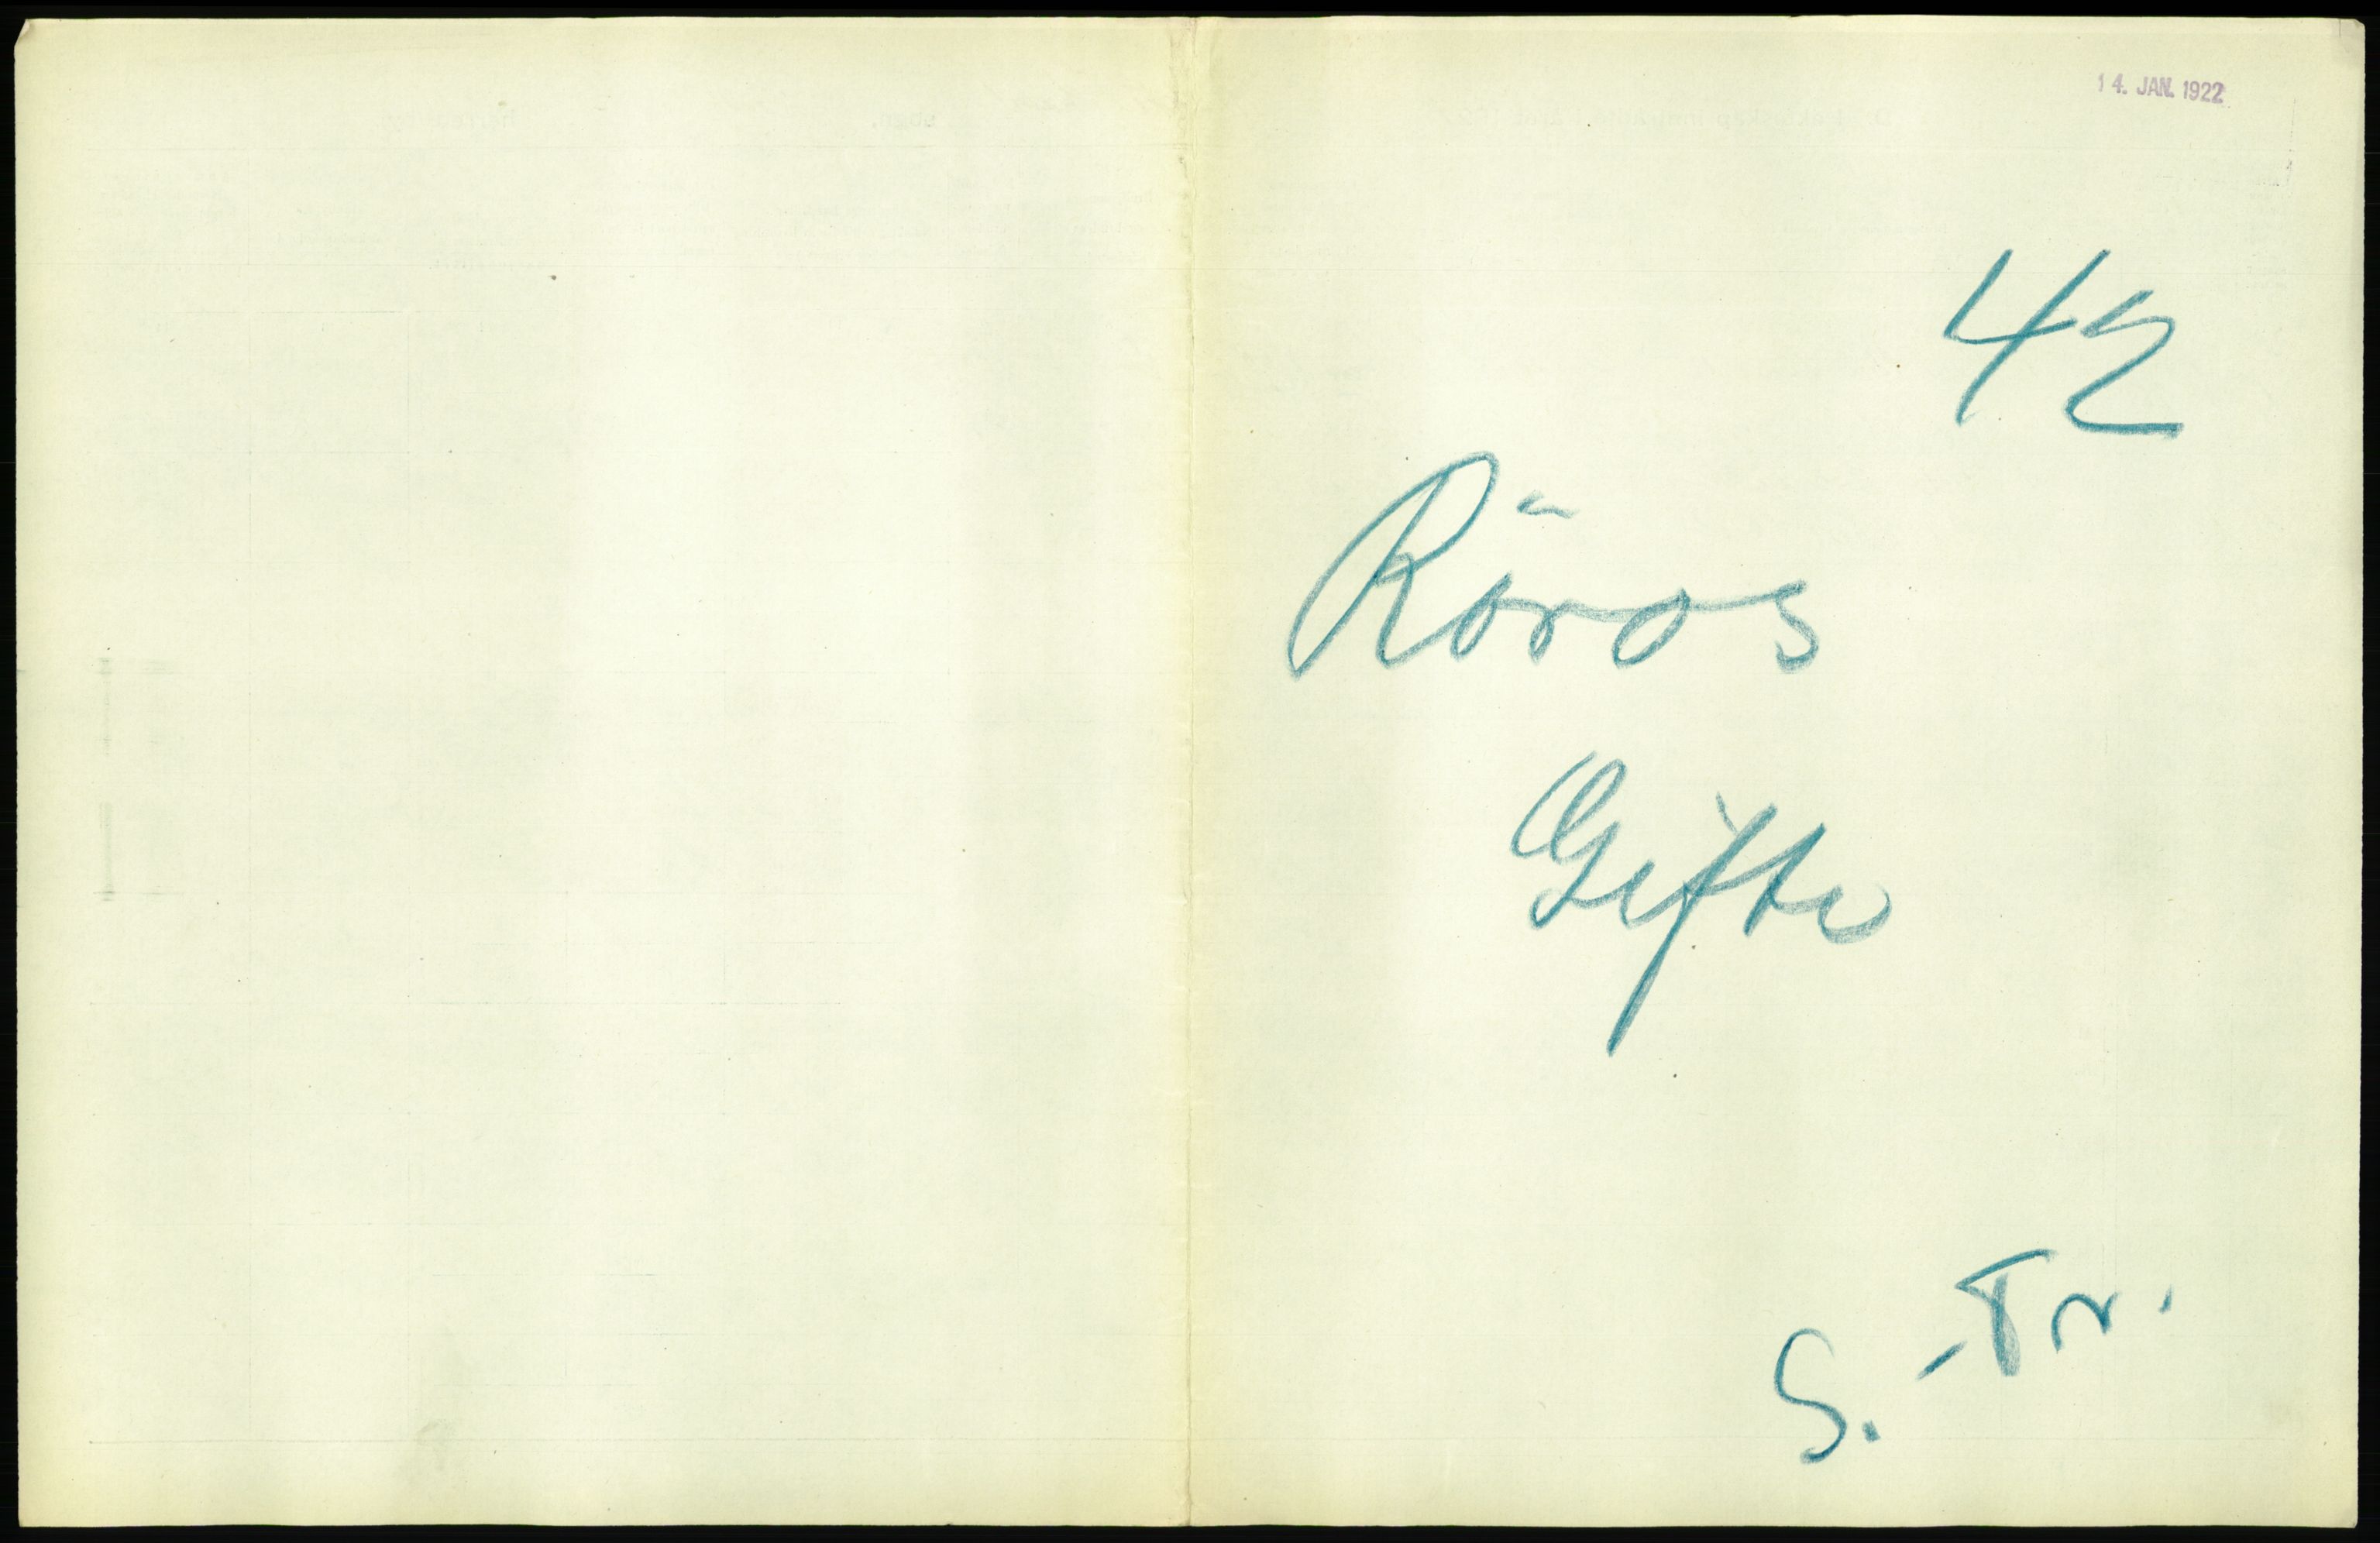 14. JAN. 1922
42
Röros
Gifte
S.-Tr.